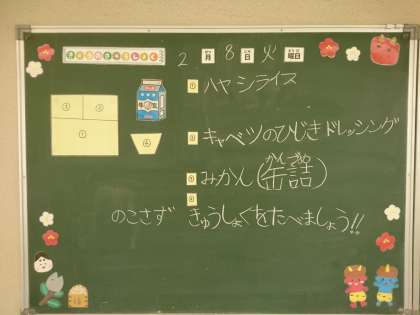 きょうのきゅうしょく
2月8日火曜日
① ハヤシライス
② キャベツのひじきドレッシング
③ みかん(缶詰)
かんづめ
のこさず きゅうしょくをたべましょう!!
牛乳